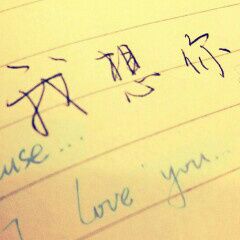 我想你
use...
I love you...